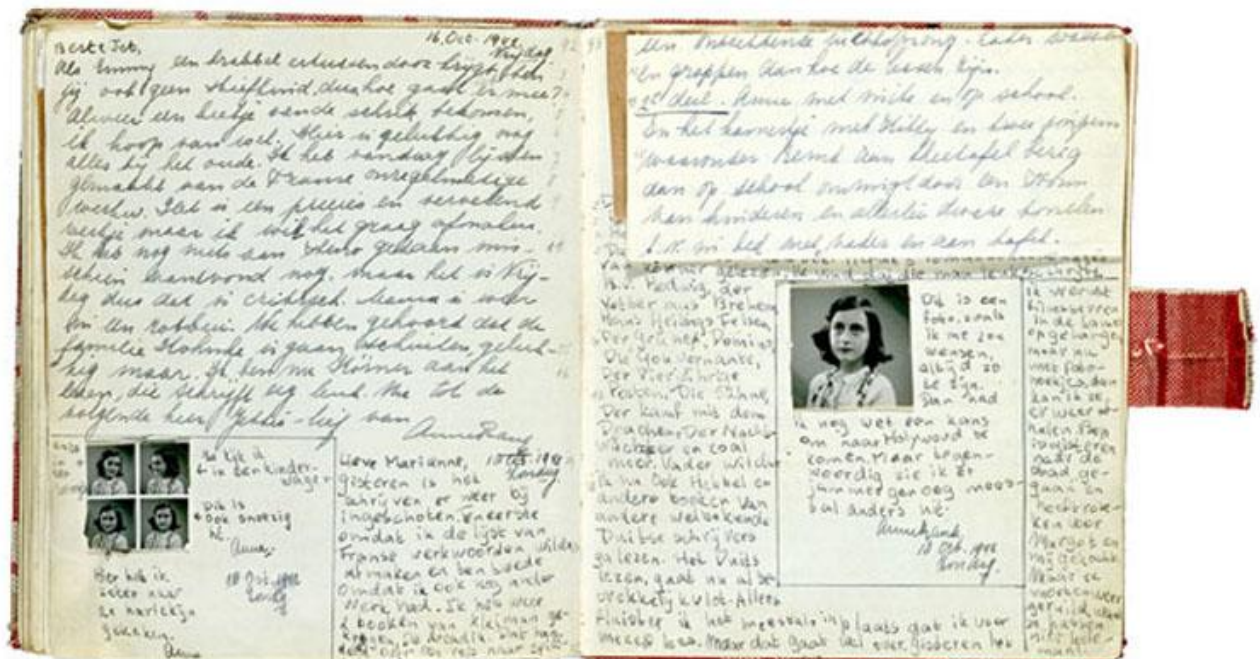 16 Oct. 1942
Vrijdag
Beste Jet,
Als Emmy een krabbel ertussen door krijgt,
jij ook geen stiefkind, dus hoe gaat er mee?
Alweer een beetje van de schrik bekomen,
ik hoop van wel. Hier is gelukkig nog
alles bij het oude. Ik heb vandaag lijsten
gemaakt van de Franse onregelmatige
werkw. Het is een precies en vervelend
werkje maar ik wil het graag afmaken.
Ik heb nog niets aan Steno gedaan mis-
schien vanavond nog, maar het is Vrij-
dag dus dat is critisch. Mama is weer
in een
We hebben gehoord dat de
familie is gaan schuilen, geluk-
kig maar. Ik ben nu Körner aan het
lezen, die schrijft erg leuk. Nu tot de
volgende keer Jettie-lief van
Anne Frank
Zo kijk ik
in den kinder-
wagen
Dit is
ook snoezig
hè.
Anne.
Hier heb ik
zeker naar
gekeken.
18 Oct. 1942
Zondag
Anne
Lieve Marianne, 18 Oct. 1942
Zondag.
gisteren is het
schrijven er weer bij
ingeschoten. Ten eerste
omdat ik de lijst van
Franse werkwoorden wilde
afmaken en ten tweede
omdat ik ook nog ander
werk had. Ik heb weer
2 boeken van Kleiman ge-
kregen, de Arcadia. Dat
een reis naar
en grappen
2e deel. Anne met en op school.
En het kamertje met Kitty en
waaronder aan theetafel
dan op school omringd door een drom
van kinderen en allerlei
in bed met vader en aan tafel.
van Körner gelezen, ik vind dat die man leuk schrijft.
B.v. Hedwig, der
Vetter aus Bremen
Hans Heilings Felsen
Der Grüne Domino,
Die Gouvernante,
Der Vierjährige
Posten, Die Sühne,
Der Kampf mit dem
Drachen, Der Nacht-
wächter en zoal
meer. Vader wil dat
ik nu ook Hebbel en
andere boeken van
andere welbekende
Duitse schrijvers
ga lezen. Het Duits
lezen, gaat nu al be-
trekkelijk vlot. Alleen
fluister ik het meestal in plaats dat ik voor
mezelf lees. Maar dat gaat wel over, gisteren heb
Dit is een
foto, zoals
ik me zou
wensen,
altijd zo
te zijn.
Dan had
ik nog wel een kans
om naar Holywood te
komen. Maar tegen-
woordig zie ik er
jammer genoeg mees-
tal anders uit.
Anne Frank.
18 Oct. 1942
Zondag.
filmsterren
in de kamer
opgehangen
maar nu
met foto-
hoekjes, dan
kan ik ze
er weer af
halen. Bep
is gisteren
naar de
stad ge-
gaan en
heeft rok-
ken voor
Margot en
mij gekocht.
Maar ze
geruild